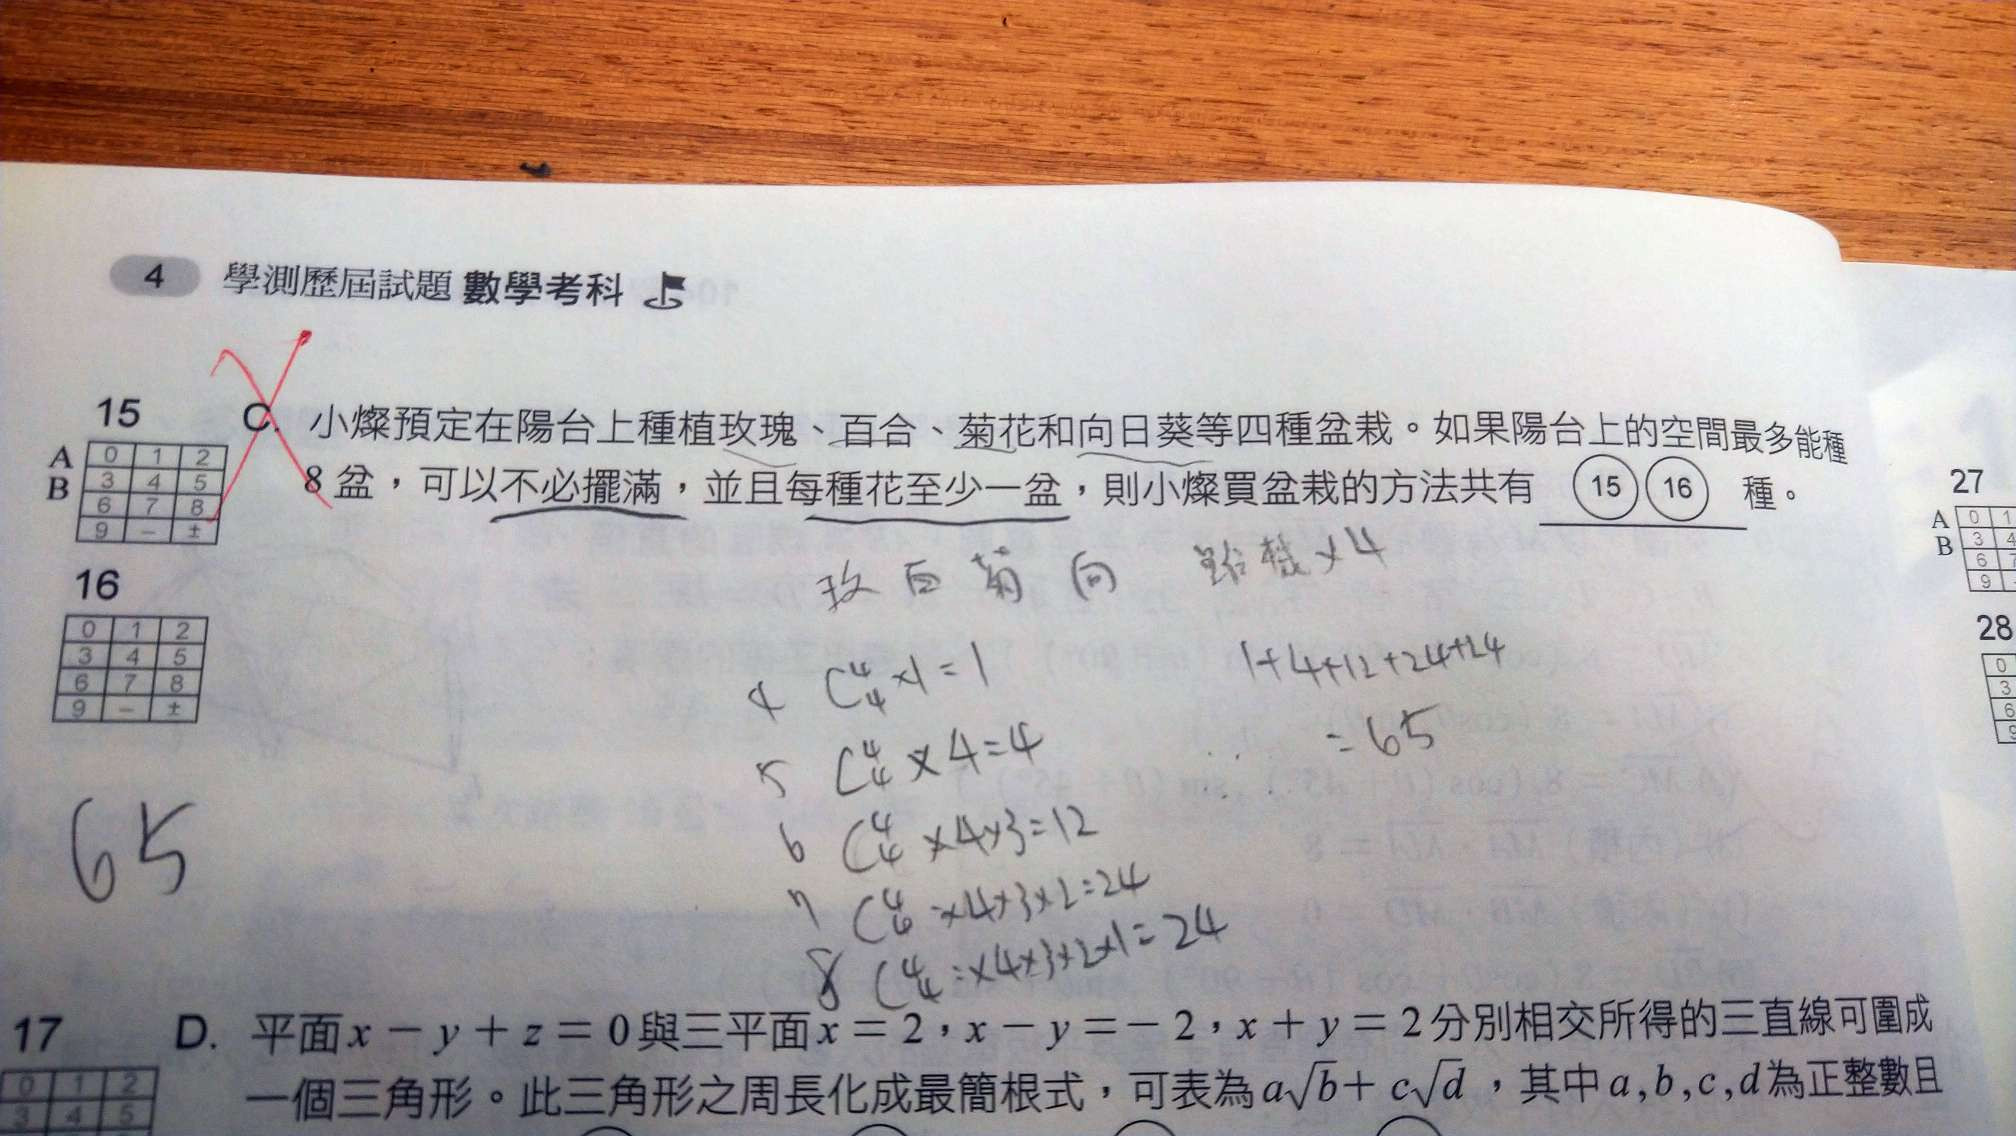 4 學測歷屆試題 數學考科
15
A
B
0 1 2
3 4 5
6 7 8
9 − ±
C. 小燦預定在陽台上種植玫瑰、百合、菊花和向日葵等四種盆栽。如果陽台上的空間最多能種
8 盆,可以不必擺滿,並且每種花至少一盆,則小燦買盆栽的方法共有 15 16 種。
玫 百 菊 向 ×4
16
0 1 2
3 4 5
6 7 8
9 − ±
65
4 C⁴₄×1=1
5 C⁴₄×4=4
6 C⁴₄×4×3=12
7 C ×4×3×2=24
8 C⁴₄ ×4×3×2×1=24
1+4+12+24+24
=65
17
0 1 2
3 4 5
D. 平面 x − y + z = 0 與三平面 x = 2,x − y = − 2,x + y = 2 分別相交所得的三直線可圍成
一個三角形。此三角形之周長化成最簡根式,可表為 a√b + c√d ,其中 a,b,c,d 為正整數且
27
A
B
0 1
3 4
6 7
9
28
0
3
6
9